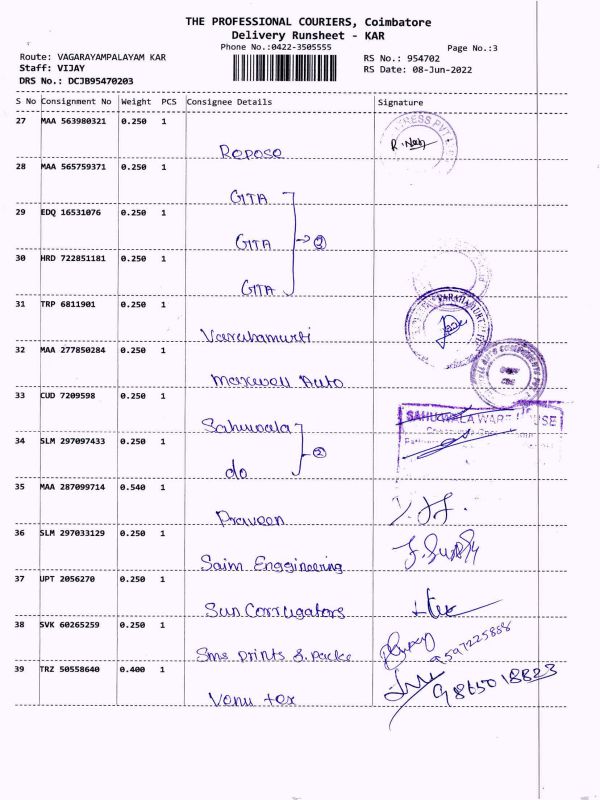 THE PROFESSIONAL COURIERS, Coimbatore
Delivery Runsheet - KAR
Phone No.:0422-3505555
Page No.:3
Route: VAGARAYAMPALAYAM KAR
RS No.: 954702
Staff: VIJAY
RS Date: 08-Jun-2022
DRS No.: DCJB95470203
S No Consignment No Weight PCS Consignee Details Signature
27 MAA 563980321 0.250 1
Repose
28 MAA 565759371 0.250 1
GITA
29 EDQ 16531076 0.250 1
GITA
30 HRD 722851181 0.250 1
GITA
31 TRP 6811901 0.250 1
Varahamurti
32 MAA 277850284 0.250 1
Maxwell Auto
33 CUD 7209598 0.250 1
Sahuwala
SAHUWALA WAREHOUSE
34 SLM 297097433 0.250 1
do
35 MAA 287099714 0.540 1
Praveen
36 SLM 297033129 0.250 1
Saim Enggineering
37 UPT 2056270 0.250 1
Sun Corrugators
38 SVK 60265259 0.250 1
Sms prints & packs
9597225888
39 TRZ 50558640 0.400 1
Venu tex
9865018823